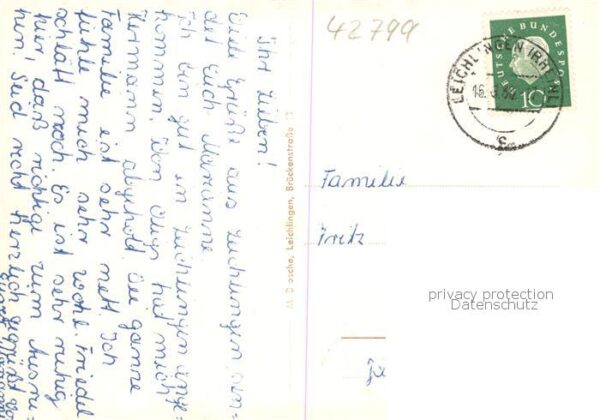 Ihr Lieben!
Viele Grüße aus Leichlingen sen=
det Euch Marianne
Ich bin gut in Leichlingen ange=
kommen. Von Olgs hat mich
Hermann abgeholt. Die ganze
Familie ist sehr nett. Ich
fühle mich sehr wohl. Friedel
schläft noch. Es ist sehr ruhig
hier, daß richtige zum Ausru=
hen. Seid recht herzlich gegrüßt von
Eurer Marianne
M. Dosche, Leichlingen, Brückenstraße 13
42799
DEUTSCHE BUNDESPOST
10
LEICHLINGEN (RHEINL)
c
Familie
Fritz
privacy protection
Datenschutz